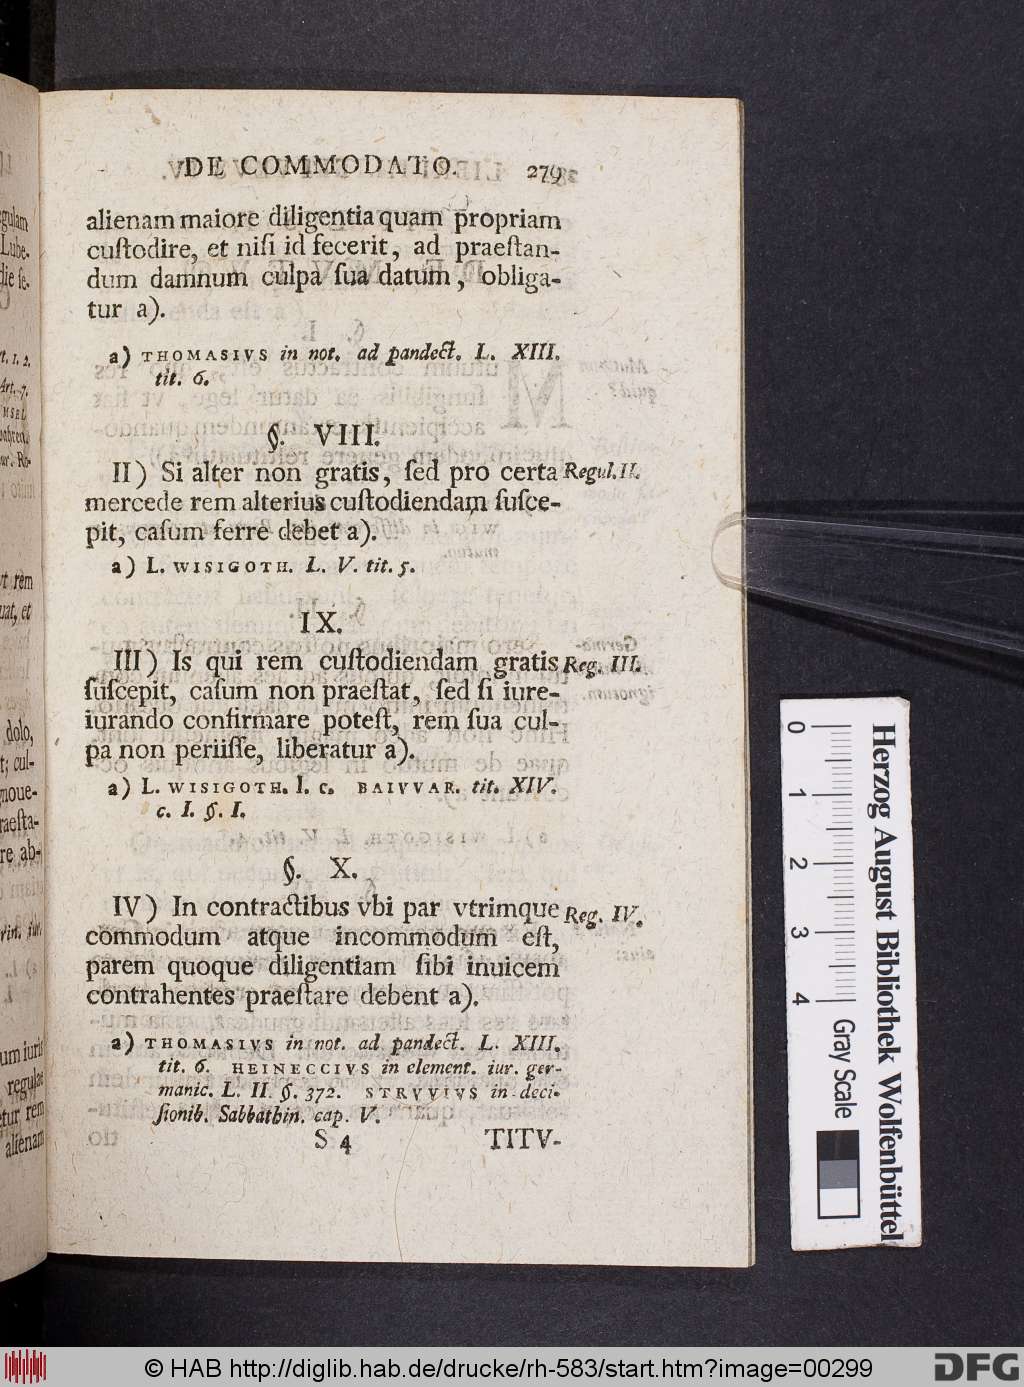 DE COMMODATO. 279
alienam maiore diligentia quam propriam
cuſtodire, et niſi id fecerit, ad praeſtan-
dum damnum culpa ſua datum, obliga-
tur a).
a) THOMASIVS in not. ad pandect. L. XIII.
tit. 6.
§. VIII.
II) Si alter non gratis, ſed pro certa Regul. II.
mercede rem alterius cuſtodiendam ſuſce-
pit, caſum ferre debet a).
a) L. WISIGOTH. L. V. tit. 5.
IX.
III) Is qui rem cuſtodiendam gratis Reg. III.
ſuſcepit, caſum non praeſtat, ſed ſi iure-
iurando confirmare poteſt, rem ſua cul-
pa non periiſſe, liberatur a).
a) L. WISIGOTH. l. c. BAIVVAR. tit. XIV.
c. I. §. I.
§. X.
IV) In contractibus vbi par vtrimque Reg. IV.
commodum atque incommodum eſt,
parem quoque diligentiam ſibi inuicem
contrahentes praeſtare debent a).
a) THOMASIVS in not. ad pandect. L. XIII.
tit. 6. HEINECCIVS in element. iur. ger-
manic. L. II. §. 372. STRVVIVS in deci-
ſionib. Sabbathin. cap. V.
S 4 TITV-
0 1 2 3 4
Herzog August Bibliothek Wolfenbüttel
Gray Scale
© HAB http://diglib.hab.de/drucke/rh-583/start.htm?image=00299
DFG